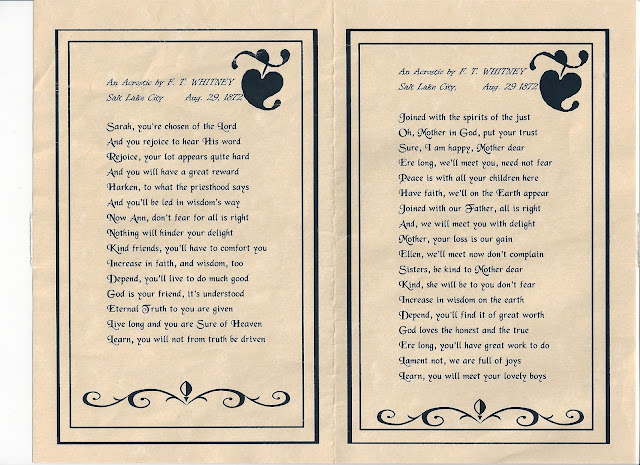 An Acrostic by F. T. WHITNEY
Salt Lake City Aug. 29, 1872
Sarah, you're chosen of the Lord
And you rejoice to hear His word
Rejoice, your lot appears quite hard
And you will have a great reward
Harken, to what the priesthood says
And you'll be led in wisdom's way
Now Ann, don't fear for all is right
Nothing will hinder your delight
Kind friends, you'll have to comfort you
Increase in faith, and wisdom, too
Depend, you'll live to do much good
God is your friend, it's understood
Eternal Truth to you are given
Live long and you are Sure of Heaven
Learn, you will not from truth be driven
An Acrostic by F. T. WHITNEY
Salt Lake City, Aug. 29 1872
Joined with the spirits of the just
Oh, Mother in God, put your trust
Sure, I am happy, Mother dear
Ere long, we'll meet you, need not fear
Peace is with all your children here
Have faith, we'll on the Earth appear
Joined with our Father, all is right
And, we will meet you with delight
Mother, your loss is our gain
Ellen, we'll meet now don't complain
Sisters, be kind to Mother dear
Kind, she will be to you don't fear
Increase in wisdom on the earth
Depend, you'll find it of great worth
God loves the honest and the true
Ere long, you'll have great work to do
Lament not, we are full of joys
Learn, you will meet your lovely boys